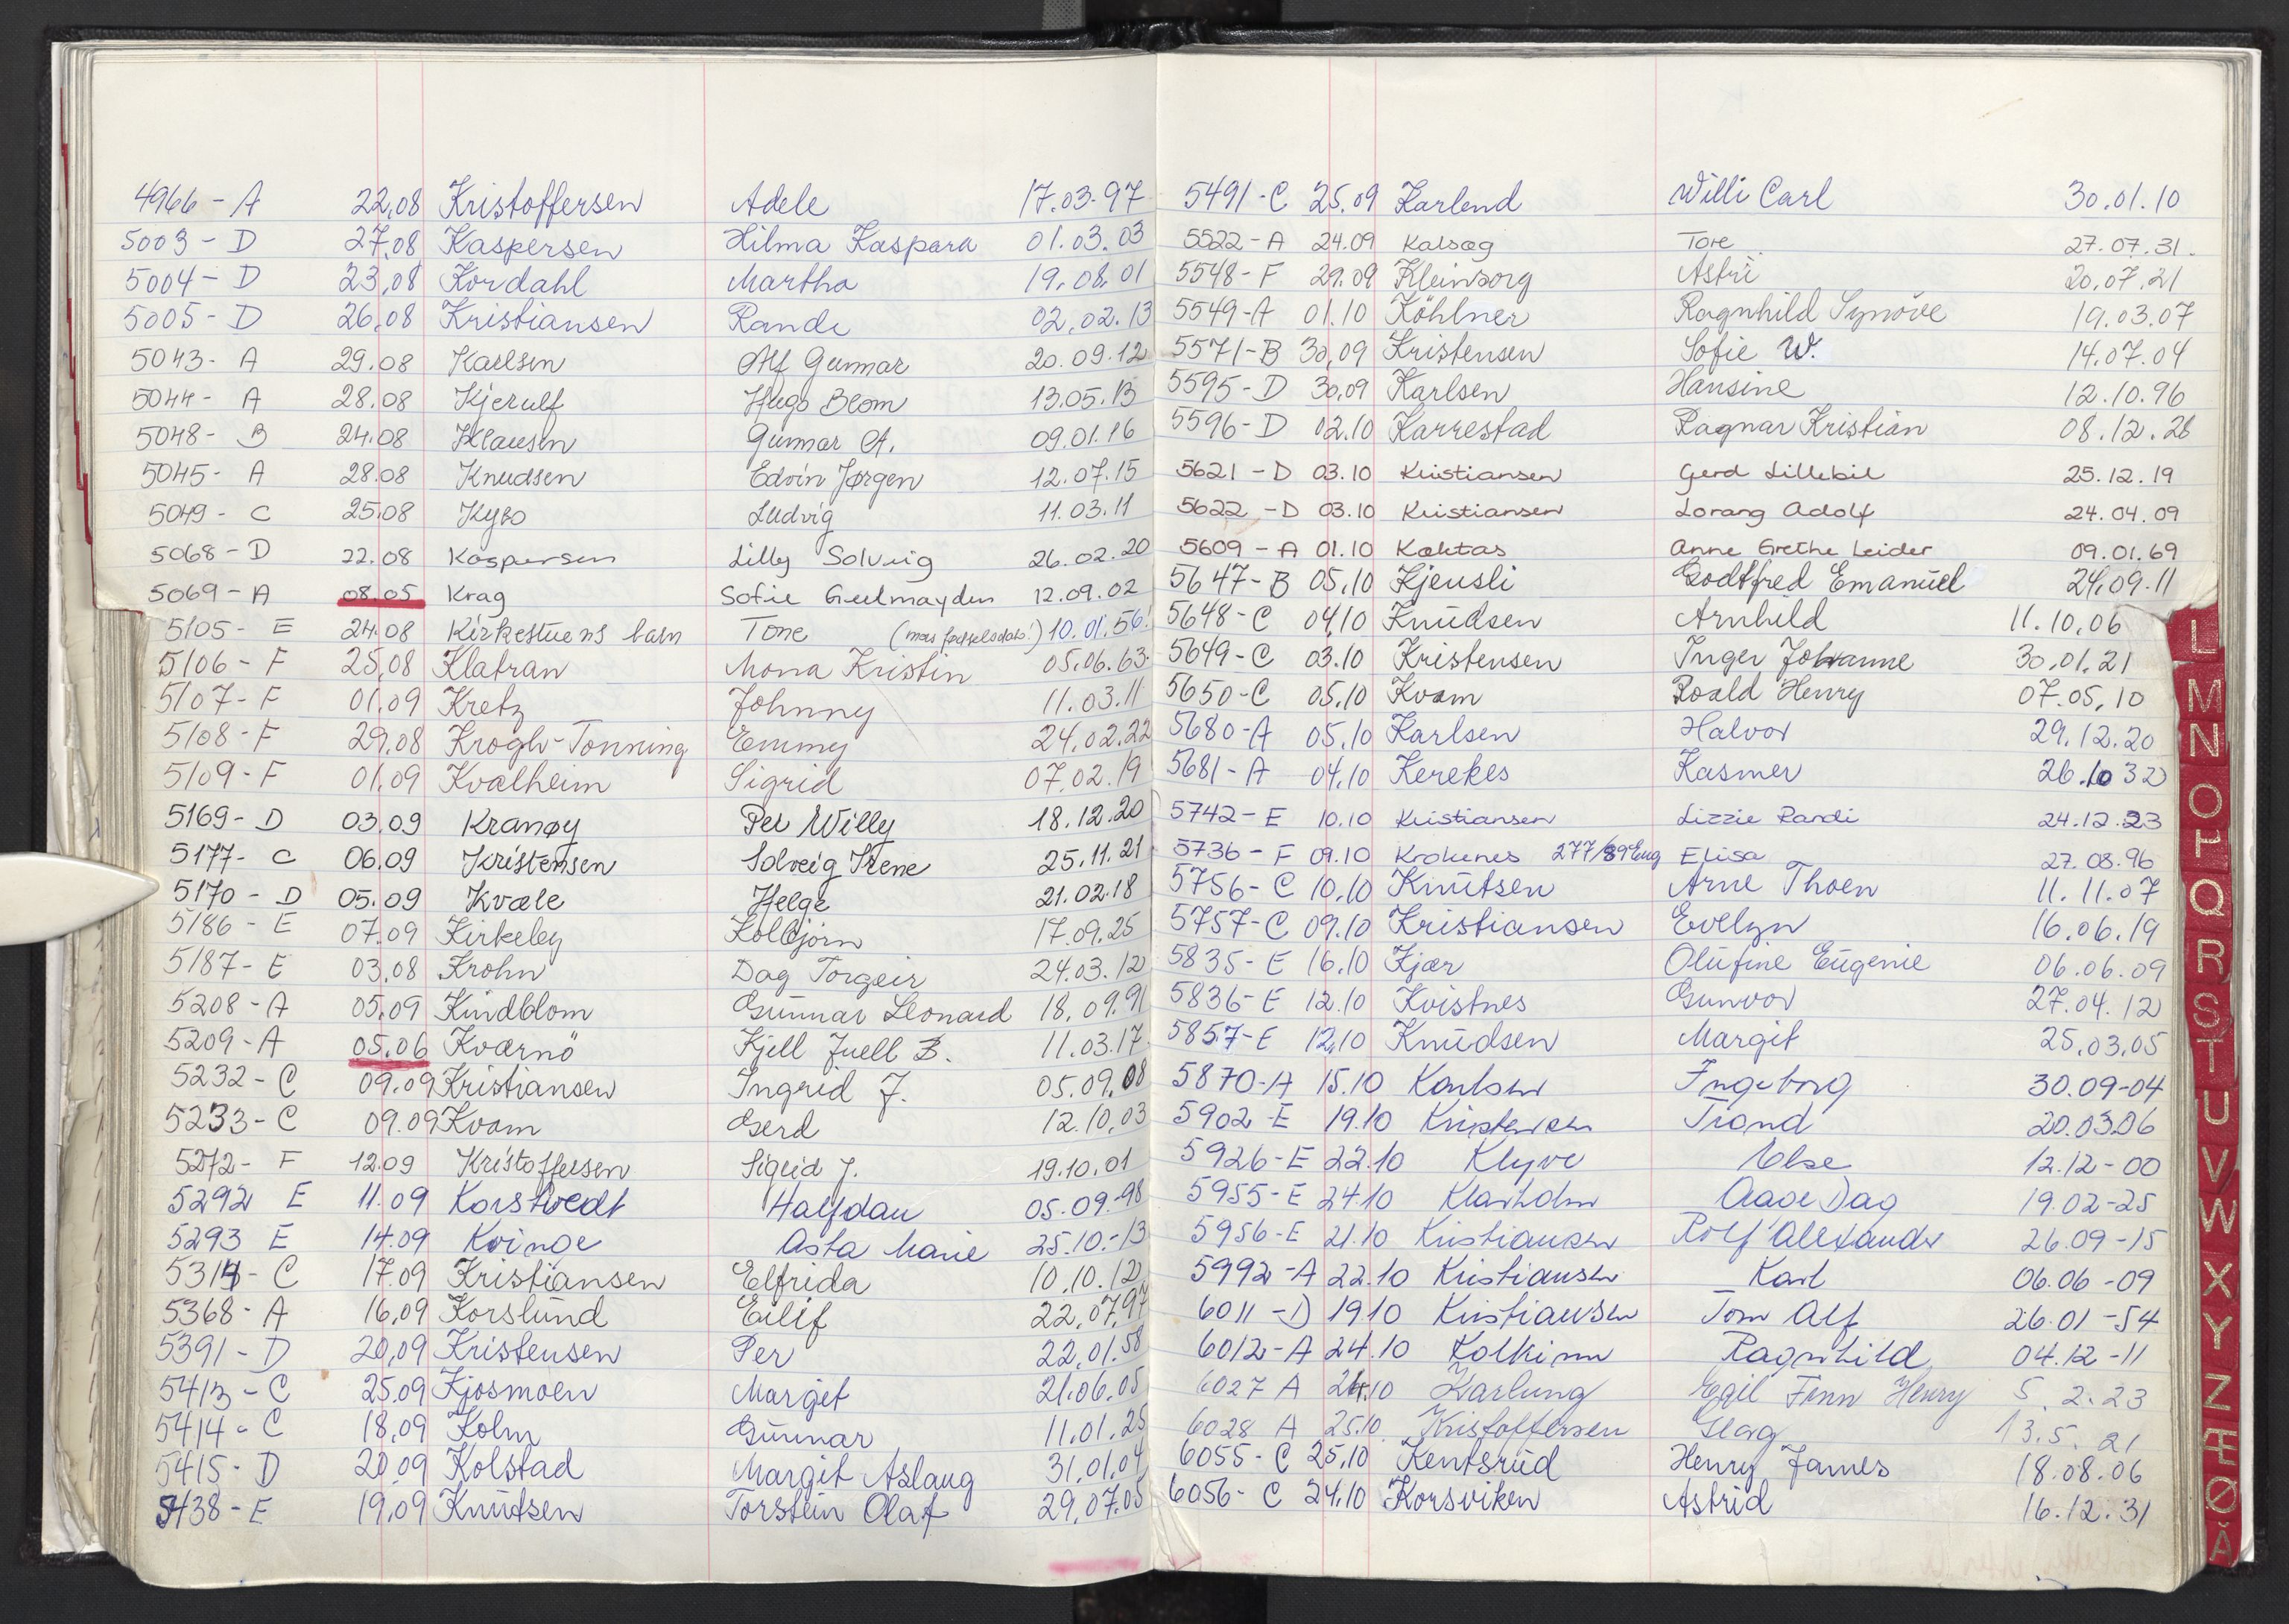 4966 - A 22,08 Kristoffersen Adele 17.03.97
5003 - D 27,08 Kaspersen Hilma Kaspara 01.03.03
5004 - D 23,08 Kordahl Martha 19.08.01
5005 - D 26,08 Kristiansen Randi 02.02.13
5043 - A 29.08 Karlsen Alf Gunnar 20.09.12
5044 - A 28.08 Kjerulf Hugo Blom 13.05.13
5048 - B 24.08 Klausen Gunnar A. 09.01.16
5045 - A 28.08 Knudsen Edvin Jørgen 12.07.15
5049 - C 25.08 Kybo Ludvig 11.03.11
5068 - D 22.08 Kaspersen Lilly Solveig 26.02.20
5069 - A 08.05 Krag Sofie Geelmuyden 12.09.02
5105 - E 24.08 Kirkestuens barn Tone (mors fødselsdato!) 10.01.56!
5106 - F 25,08 Klatran Mona Kristin 05.06.63
5107 - F 01.09 Kretz Johnny 11.03.11
5108 - F 29,08 Krogh-Tonning Emmy 24.02.22
5109 - F 01.09 Kvalheim Sigrid 07.02.19
5169 - D 03.09 Kranøy Per Willy 18.12.20
5177 - C 06.09 Kristensen Solveig Irene 25.11.21
5170 - D 05.09 Kvale Helge 21.02.18
5186 - E 07.09 Kirkeby Kolbjørn 17.09.25
5187 - E 03.08 Krohn Dag Torgeir 24.03.12
5208 - A 05,09 Kindblom Gunnar Leonard 18.09.91
5209 - A 05.06 Kværnö Kjell Juell B. 11.03.17
5232 - C 09.09 Kristiansen Ingrid J. 05.09.08
5233 - C 09.09 Kvam Gerd 12.10,03
5272 - F 12.09 Kristoffersen Sigrid J. 19.10.01
5292 E 11.09 Korstvedt Halfdan 05.09.-98
5293 E 14.09 Kvinge Asta Marie 25.10.-13
5314 - C 17.09 Kristiansen Elfrida 10.10.12
5368 - A 16,09 Korslund Eilif 22,07,97
5391 - D 20,09 Kristensen Per 22,01.58
5413 - C 25.09 Kjosmoen Margit 21.06.05
5414 - C 18,09 Kolm Gunnar 11.01.25
5415 - D 20.09 Kolstad Margit Aslaug 31,01,04
5438 - E 19,09 Knutsen Torstein Olaf 29,07.05
5491 - C 25.09 Karlend Willi Carl 30.01.10
5522 - A 24.09 Kalsæg Tore 27.07.31.
5548 - F 29.09 Kleinsorg Astri 20,07,21
5549 - A 01.10 Köhlner Ragnhild Synöve 19.03.07
5571 - B 30,09 Kristensen Sofie W. 14.07.04
5595 - D 30,09 Karlsen Hansine 12.10.96
5596 - D 02.10 Karrestad Ragnar Kristian 08.12.26
5621 - D 03.10 Kristiansen Gerd Lillebil 25.12.19
5622 - D 03.10 Kristiansen Lorang Adolf 24.04.09
5609 - A 01.10 Kaktas Anne Grethe Leider 09.01.69
5647 - B 05,10 Kjensli Godtfred Emanuel 24,09.11
5648 - C 04,10 Knudsen Arnhild 11.10,06
5649 - C 03.10 Kristensen Inger Johanne 30,01.21
5650 - C 05,10 Kvam Roald Henry 07.05,10
5680 - A 05.10 Karlsen Halvor 29.12.20
5681 - A 04.10 Kerekes Kasmer 26.10 32
5742 - E 10.10 Kristiansen Lizzie Randi 24.12.23
5736 - F 09.10 Krokenes 277/89 Eng Elisa 27.08.96
5756 - C 10.10 Knutsen Arne Thoen 11.11.07
5757 - C 09.10 Kristiansen Evelyn 16.06.19
5835 - E 16.10 Kjær Olufine Eugenie 06.06.09
5836 - E 12.10 Kvistnes Gunvor 27.04.12
5857 - E 12,10 Knudsen Margit 25.03.05
5870 - A 15.10 Karlsen Ingeborg 30.09-04
5902 - E 19.10 Kristensen Trond 20.03.06
5926 - E 22.10 Klyve Else 12.12-00
5955 - E 24.10 Klarholm Aage Dag 19.02-25
5956 - E 21.10 Kristiansen Rolf Alexander 26.09-15
5992 - A 22.10 Kristiansen Karl 06.06-09
6011 - D 19.10 Kristiansen Tom Alf 26.01-54
6012 - A 24.10 Kolkinn Ragnhild 04.12-11
6027 A 24.10 Karlung Egil Finn Henry 5.2.23
6028 A 25.10 Kristoffersen 13.5.21
6055 - C 25,10 Kentsrud Henry James 18.08.06
6056 - C 24.10 Korsviken Astrid 16.12.31
L
M
N
O
P
Q
R
S
T
U
V
W
X
Y
Z
Æ
Ø
Å